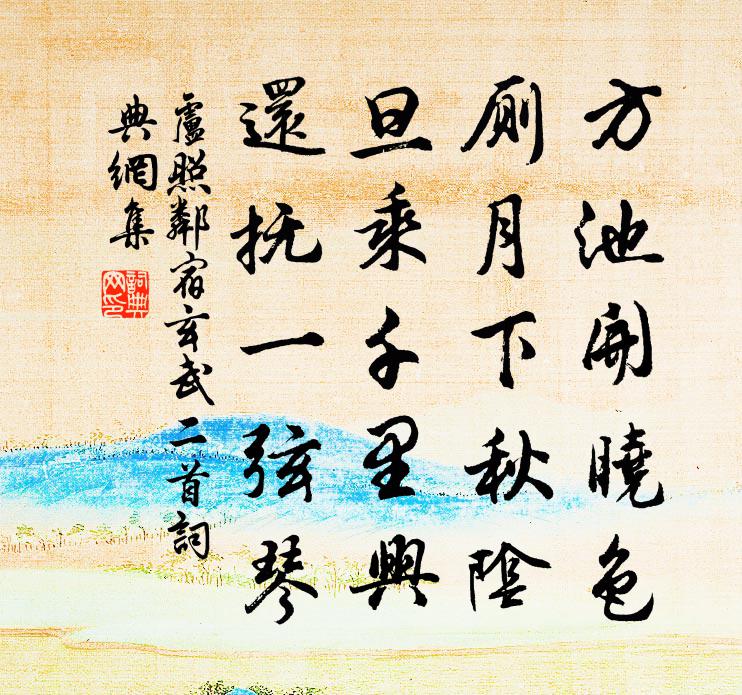 方池開曉色
厠月下秋陰
旦乘千里興
還抚一弦琴
盧照鄰宿玄武二首詞
典網集
詞典
网印